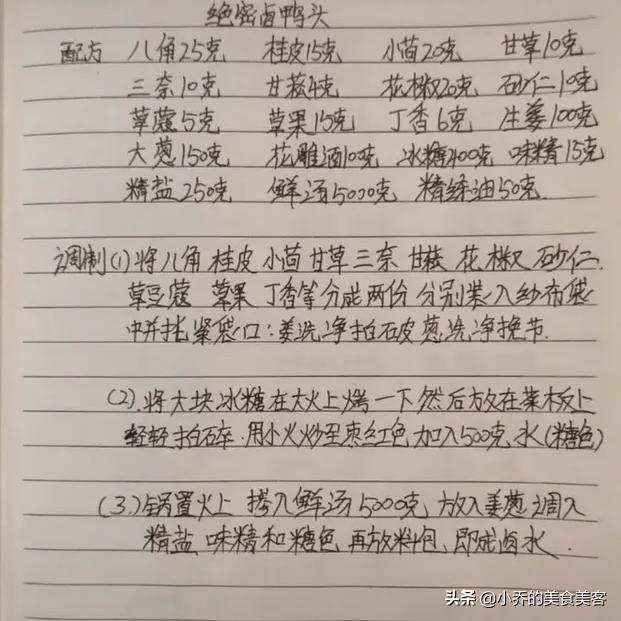 绝密卤鸭头
配方 八角25克 桂皮15克 小茴20克 甘草10克
三奈10克 甘菘4克 花椒20克 砂仁10克
草蔻5克 草果15克 丁香6克 生姜100克
大葱150克 花雕酒10克 冰糖400克 味精15克
精盐250克 鲜汤5000克 精练油50克
调制(1)将八角 桂皮 小茴 甘草 三奈 甘菘 花椒 砂仁.
草豆蔻 草果 丁香等分成两份 分别装入纱布袋
中并扎紧袋口:姜洗净拍破 葱洗净挽节.
(2).将大块冰糖在大火上烤一下 然后放在菜板上
轻轻拍碎.用小火炒至枣红色 加入500克水(糖色)
(3.)锅置火上 掺入鲜汤5000克 放入姜葱 调入
精盐 味精和糖色 再放料包,即成卤水.
头条 @小乔的美食美客